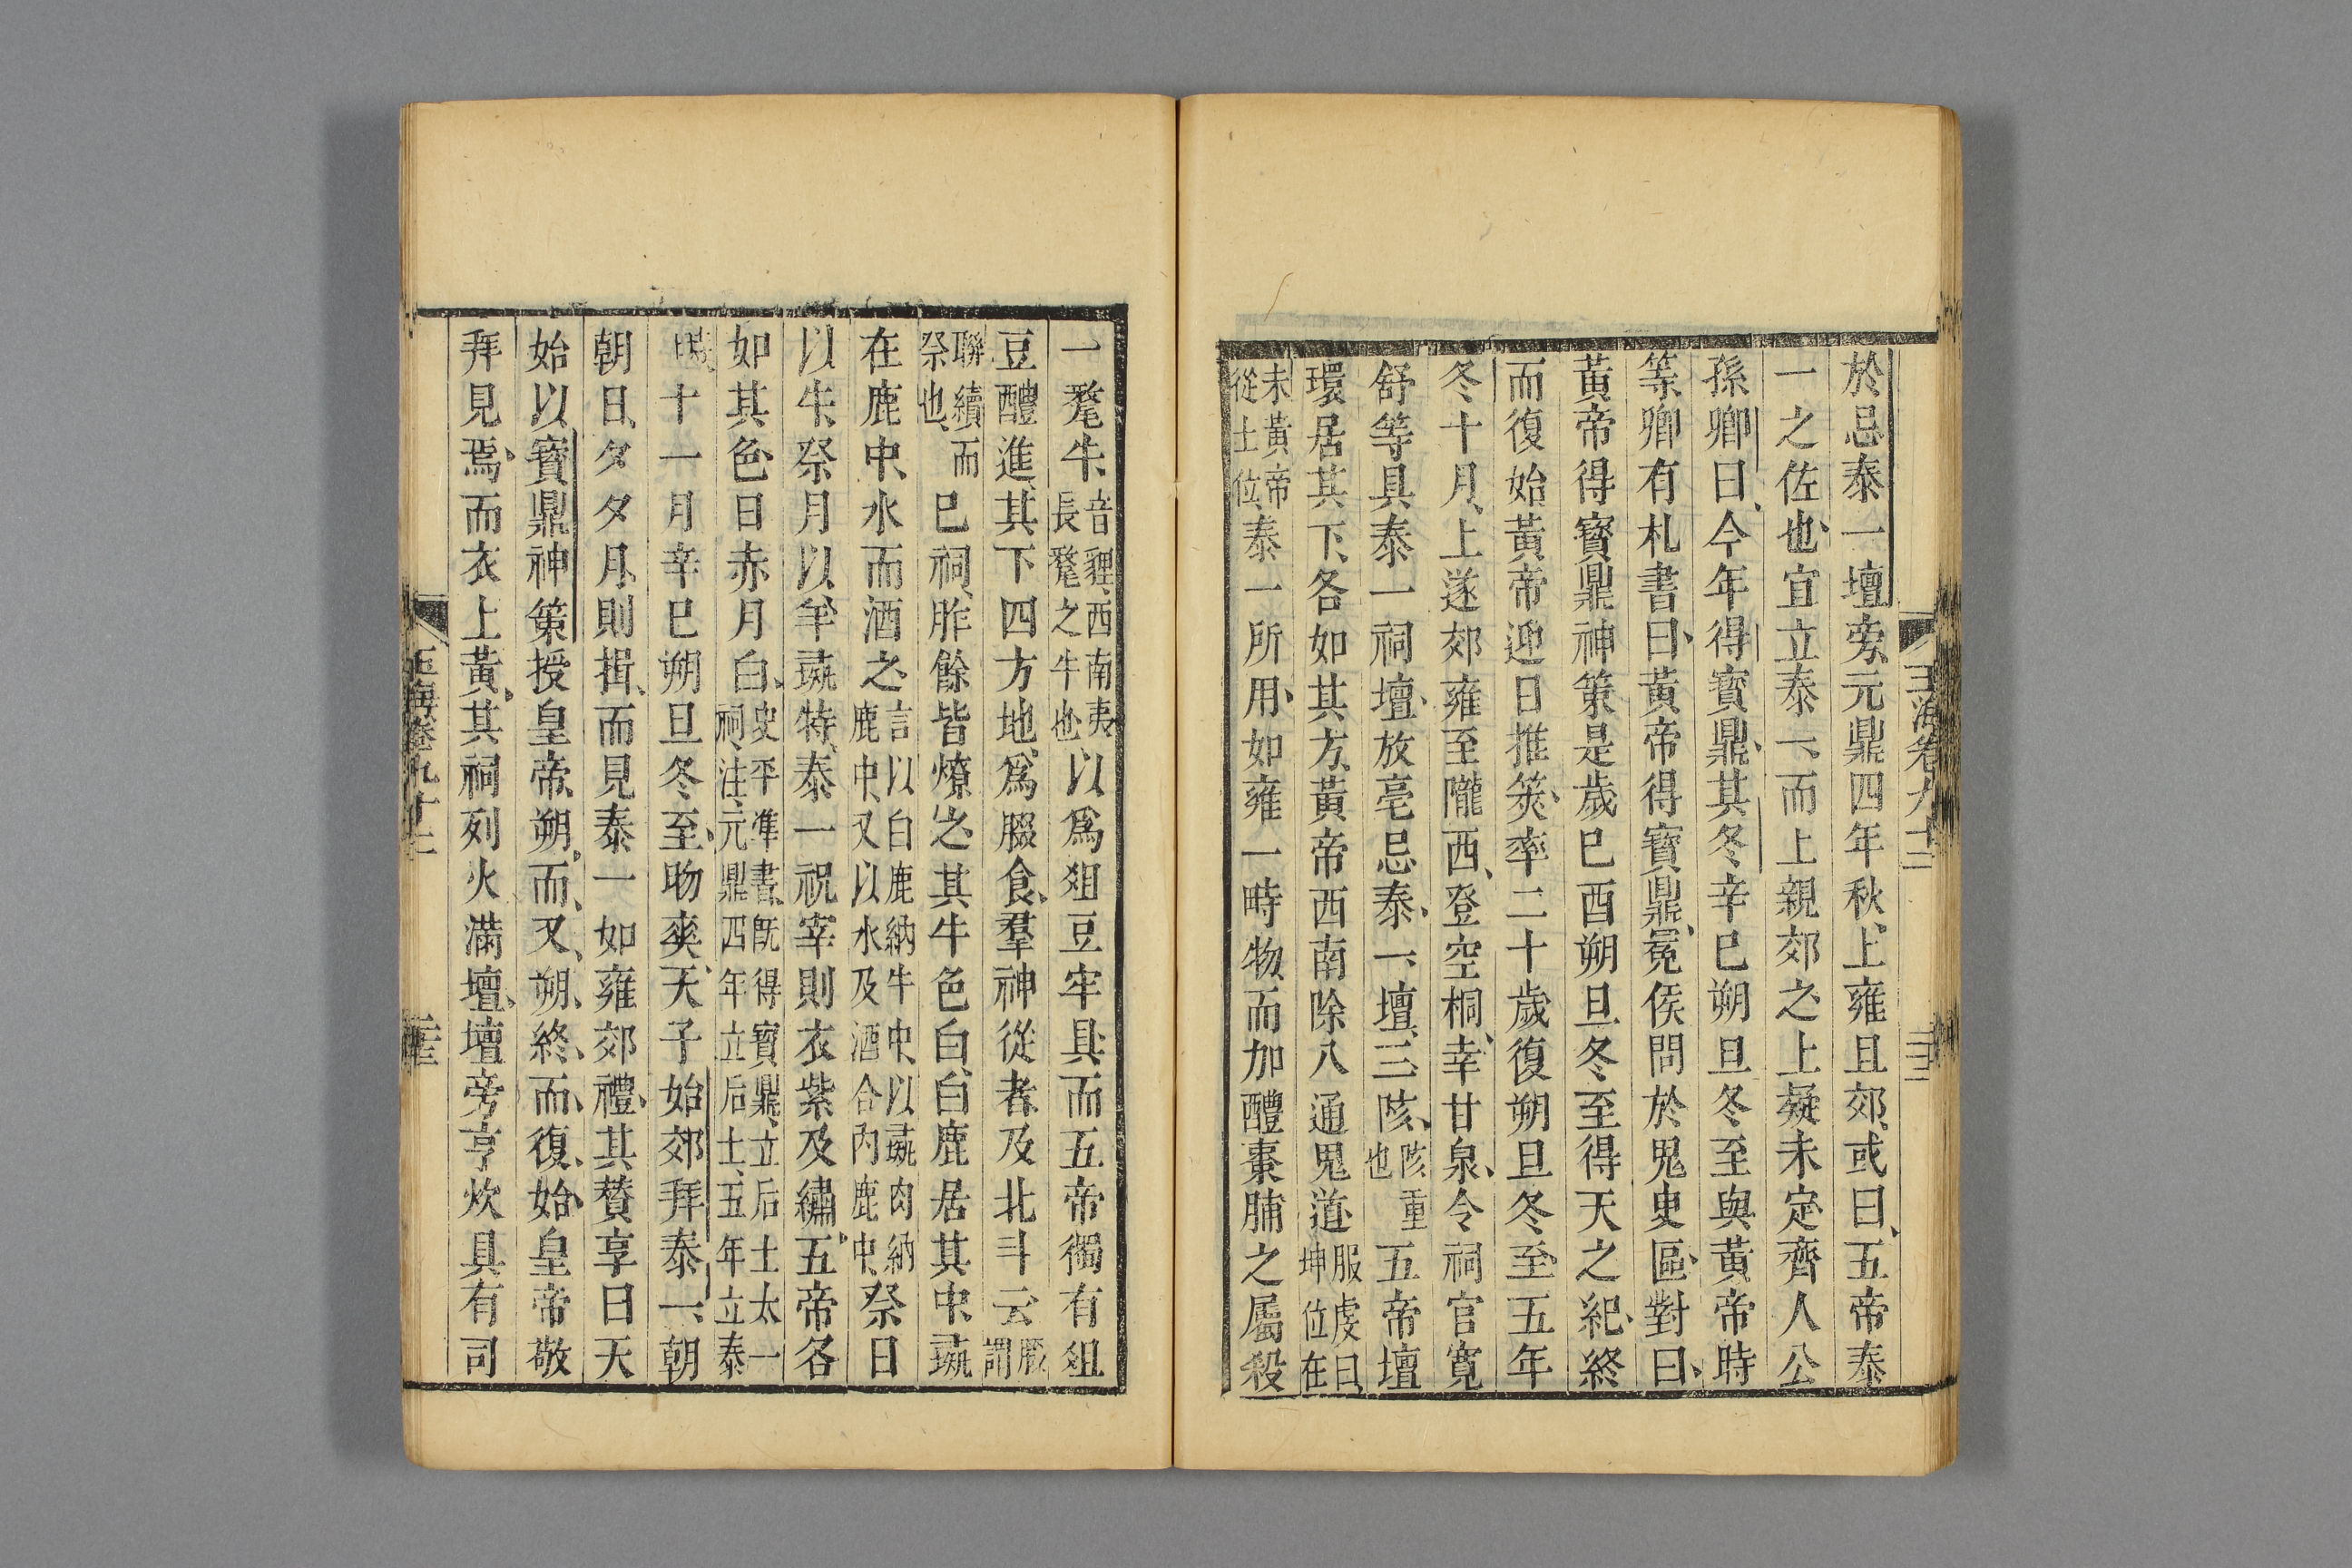 於忌泰一壇旁、元鼎四年秋、上雍且郊、或曰、五帝泰
一之佐也、宜立泰一、而上親郊之、上疑未定、齊人公
孫卿曰、今年得寳鼎、其冬辛巳朔旦冬至與黃帝時
等、卿有札書曰、黃帝得寳鼎、冕侯問於鬼㬰區、對曰、
黃帝得寳鼎神策是歲巳酉朔旦冬至得天之紀、終
而復始黃帝迎日推筴、率二十歲復朔旦冬至、五年
冬十月、上遂郊雍至隴西、登空桐、幸甘泉、令祠官寛
舒等具泰一祠壇、放亳忌泰、一、壇、三陔、陔重也五帝壇
環居其下、各如其方、黃帝西南除八通鬼道、服虔曰、坤位在
未黃帝從土位、泰一所用、如雍一畤物、而加醴棗脯之屬殺
一犛牛、音貍、西南夷長犛之牛也以爲俎豆牢具而五帝獨有俎
豆醴進、其下四方地、爲腏食、羣神從者、及北斗云、腏謂
聯續而祭也、巳祠、胙餘皆燎之、其牛色白、白鹿居其中、彘
在鹿中、水而酒之、言以白鹿納牛中、以彘肉納鹿中、又以水及酒合內鹿中、祭日
以牛、祭月以羊彘特、泰一祝宰則衣紫及繡、五帝各
如其色、日赤月白、史平準書、旣得寳鼎、立后土太一祠、注、元鼎四年立后土、五年立泰
畤十一月辛巳朔旦冬至、昒爽、天子始郊拜泰一、朝
朝日、夕夕月、則揖、而見泰一如雍郊禮、其贊享曰天
始以寳鼎神策授皇帝、朔、而、又、朔、終、而、復、始、皇帝敬
拜見焉、而衣上黃、其祠列火滿壇、壇旁亨炊具有司
玉海卷九十二
玉海卷九十二